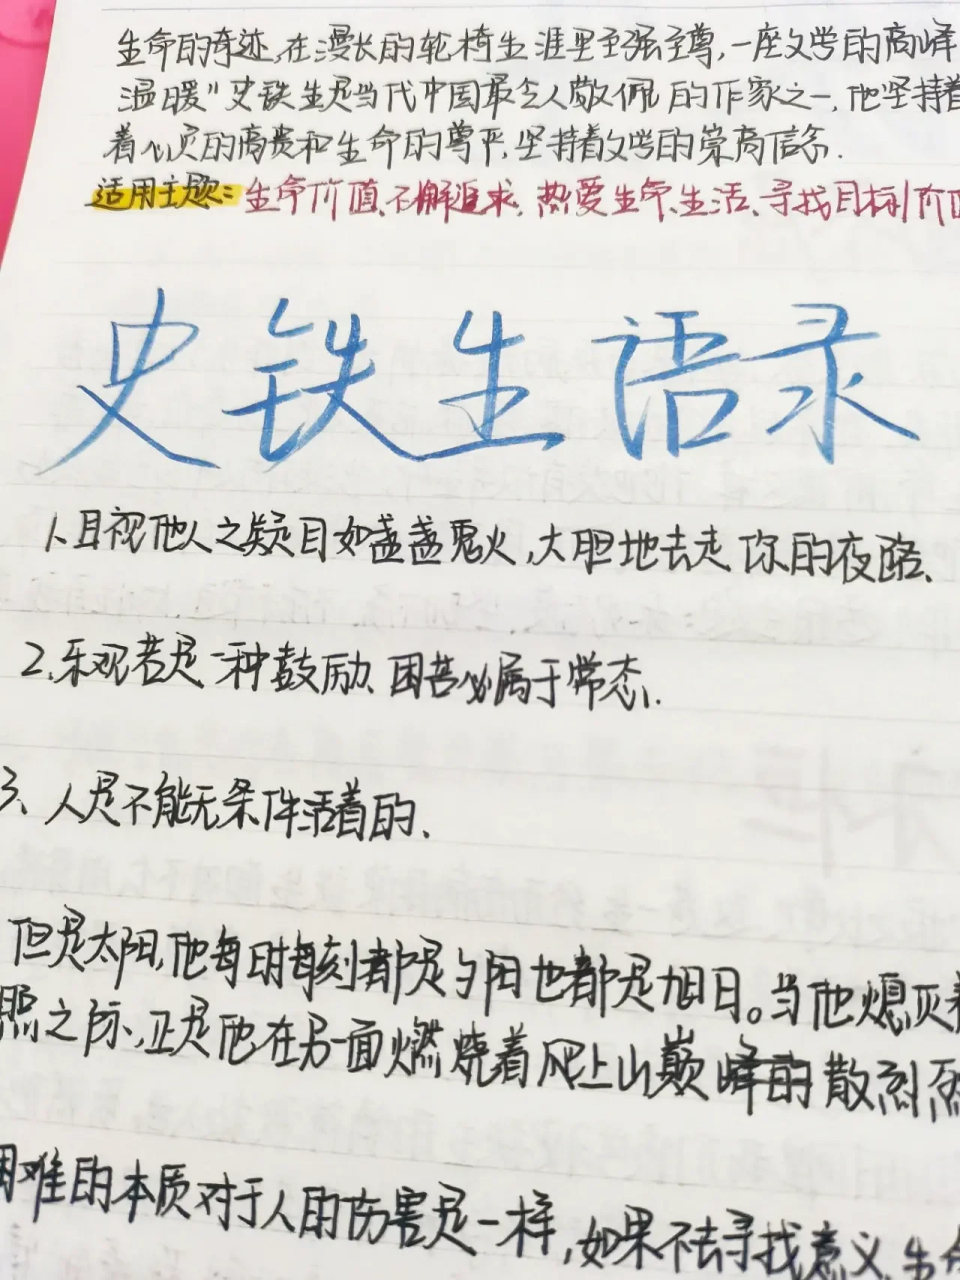 生命的奇迹,在漫长的轮椅生涯里至强至尊,一座文学的高峰
温暖"史铁生是当代中国最令人敬佩的作家之一,他坚持着
着心灵的高贵和生命的尊严,坚持着文学的崇高信念.
适用主题:生命价值、不懈追求、热爱生命、生活、寻找目标价值
史铁生语录
1、且视他人之疑目如盏盏鬼火,大胆地去走你的夜路、
2、乐观者是一种鼓励、困苦必属于常态、
3、人是不能无条件活着的、
但是太阳,他每时每刻都是夕阳也都是旭日。当他熄灭着
照之际、正是他在另一面燃烧着爬上山巅散烈烈
困难的本质对于人的伤害是一样,如果不去寻找意义,生命